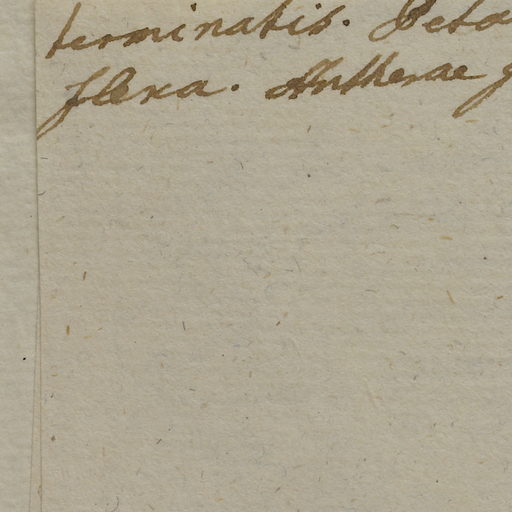 terminatis. Peta
flexa. Antherae